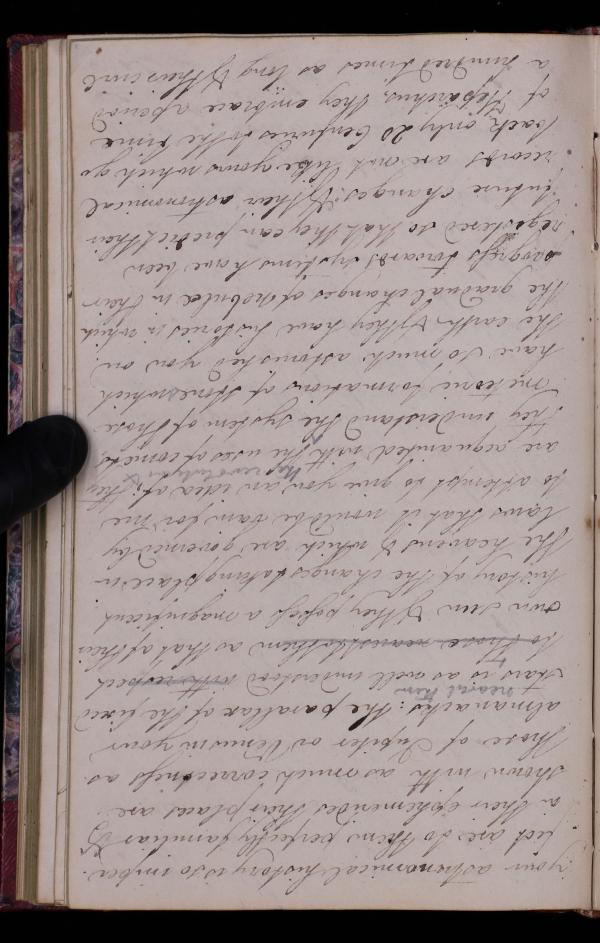 your astronomical history is to imper-
fect are to them perfectly familiar &
in their ephemerides their places are
shown with as much correctness as
those of Jupiter or Venus in your
almanacks: the parallax of the fixed
stars nearest them is as well understood with respect
to those nearest to them as that of their
own sun & they possess a magnificent
history of the changes taking place in
the heavens & which are governed by
laws that it would be vain for me
to attempt to give you an idea of; they
are acquainted with the revolutions & the uses of comets
They understand the system of those
meteoric formations of stones which
have so much astonished you on
the earth & they have histories in which
the gradual changes of nebulæ in their
progress towards systems have been
registered so that they can predict their
future changes. & their astronomical
records are not like yours which go
back only 20 Centuries to the time
of Hipparchus, they embrace a period
a hundred times as long & their civil